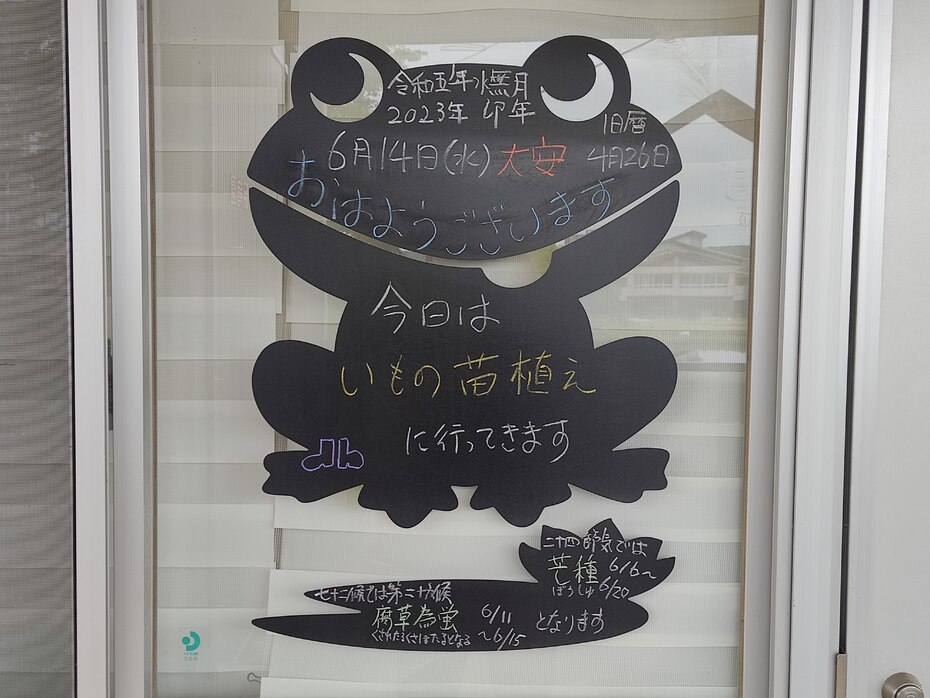 令和五年水無月
2023年 卯年
旧暦
6月14日(水) 大安 4月26日
おはようございます
今日は
いもの苗植え
に行ってきます
二十四節気では
芒種 6/6～
ぼうしゅ 6/20
七十二候では第二十六候
腐草為蛍 6/11
くされたるくさほたるとなる ～6/15
となります